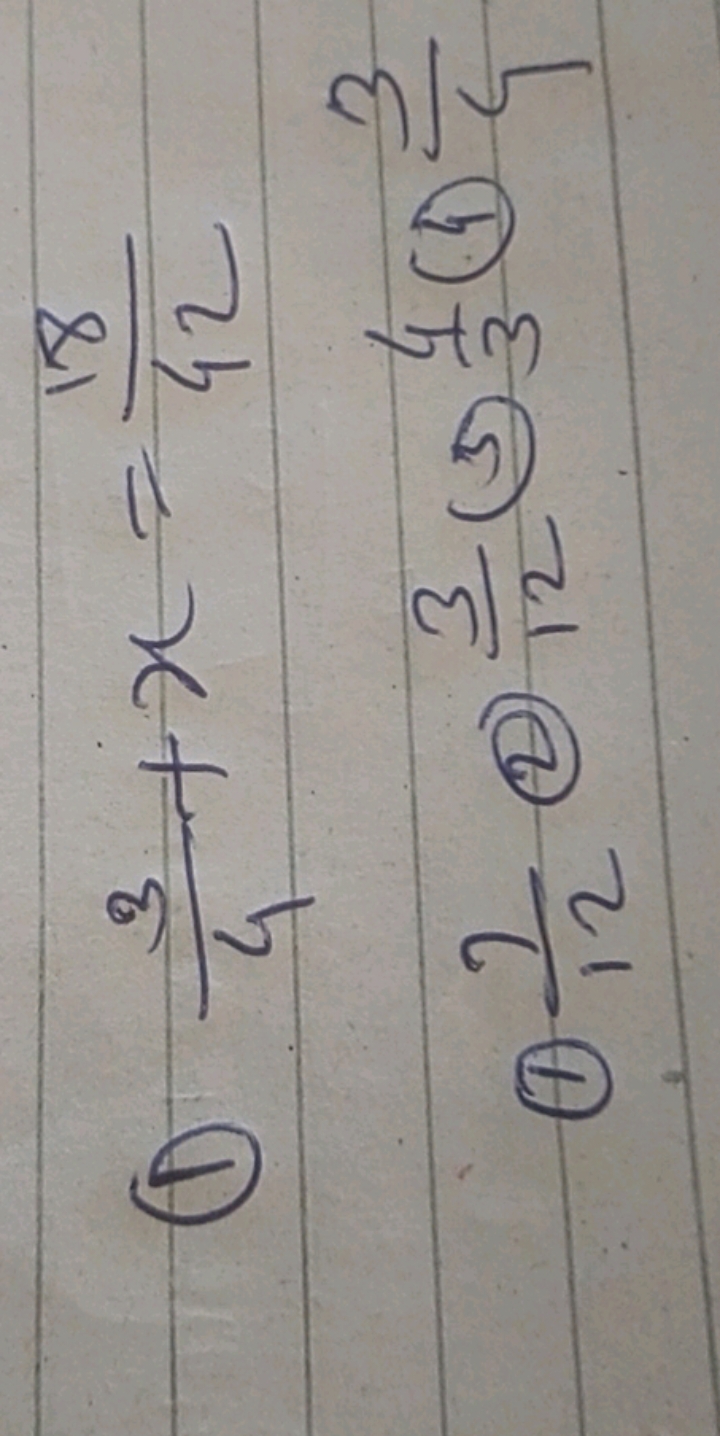 ① 3/4 + x = 18/42
① 7/12 ② 3/12 ③ 4/3 ④ 3/4